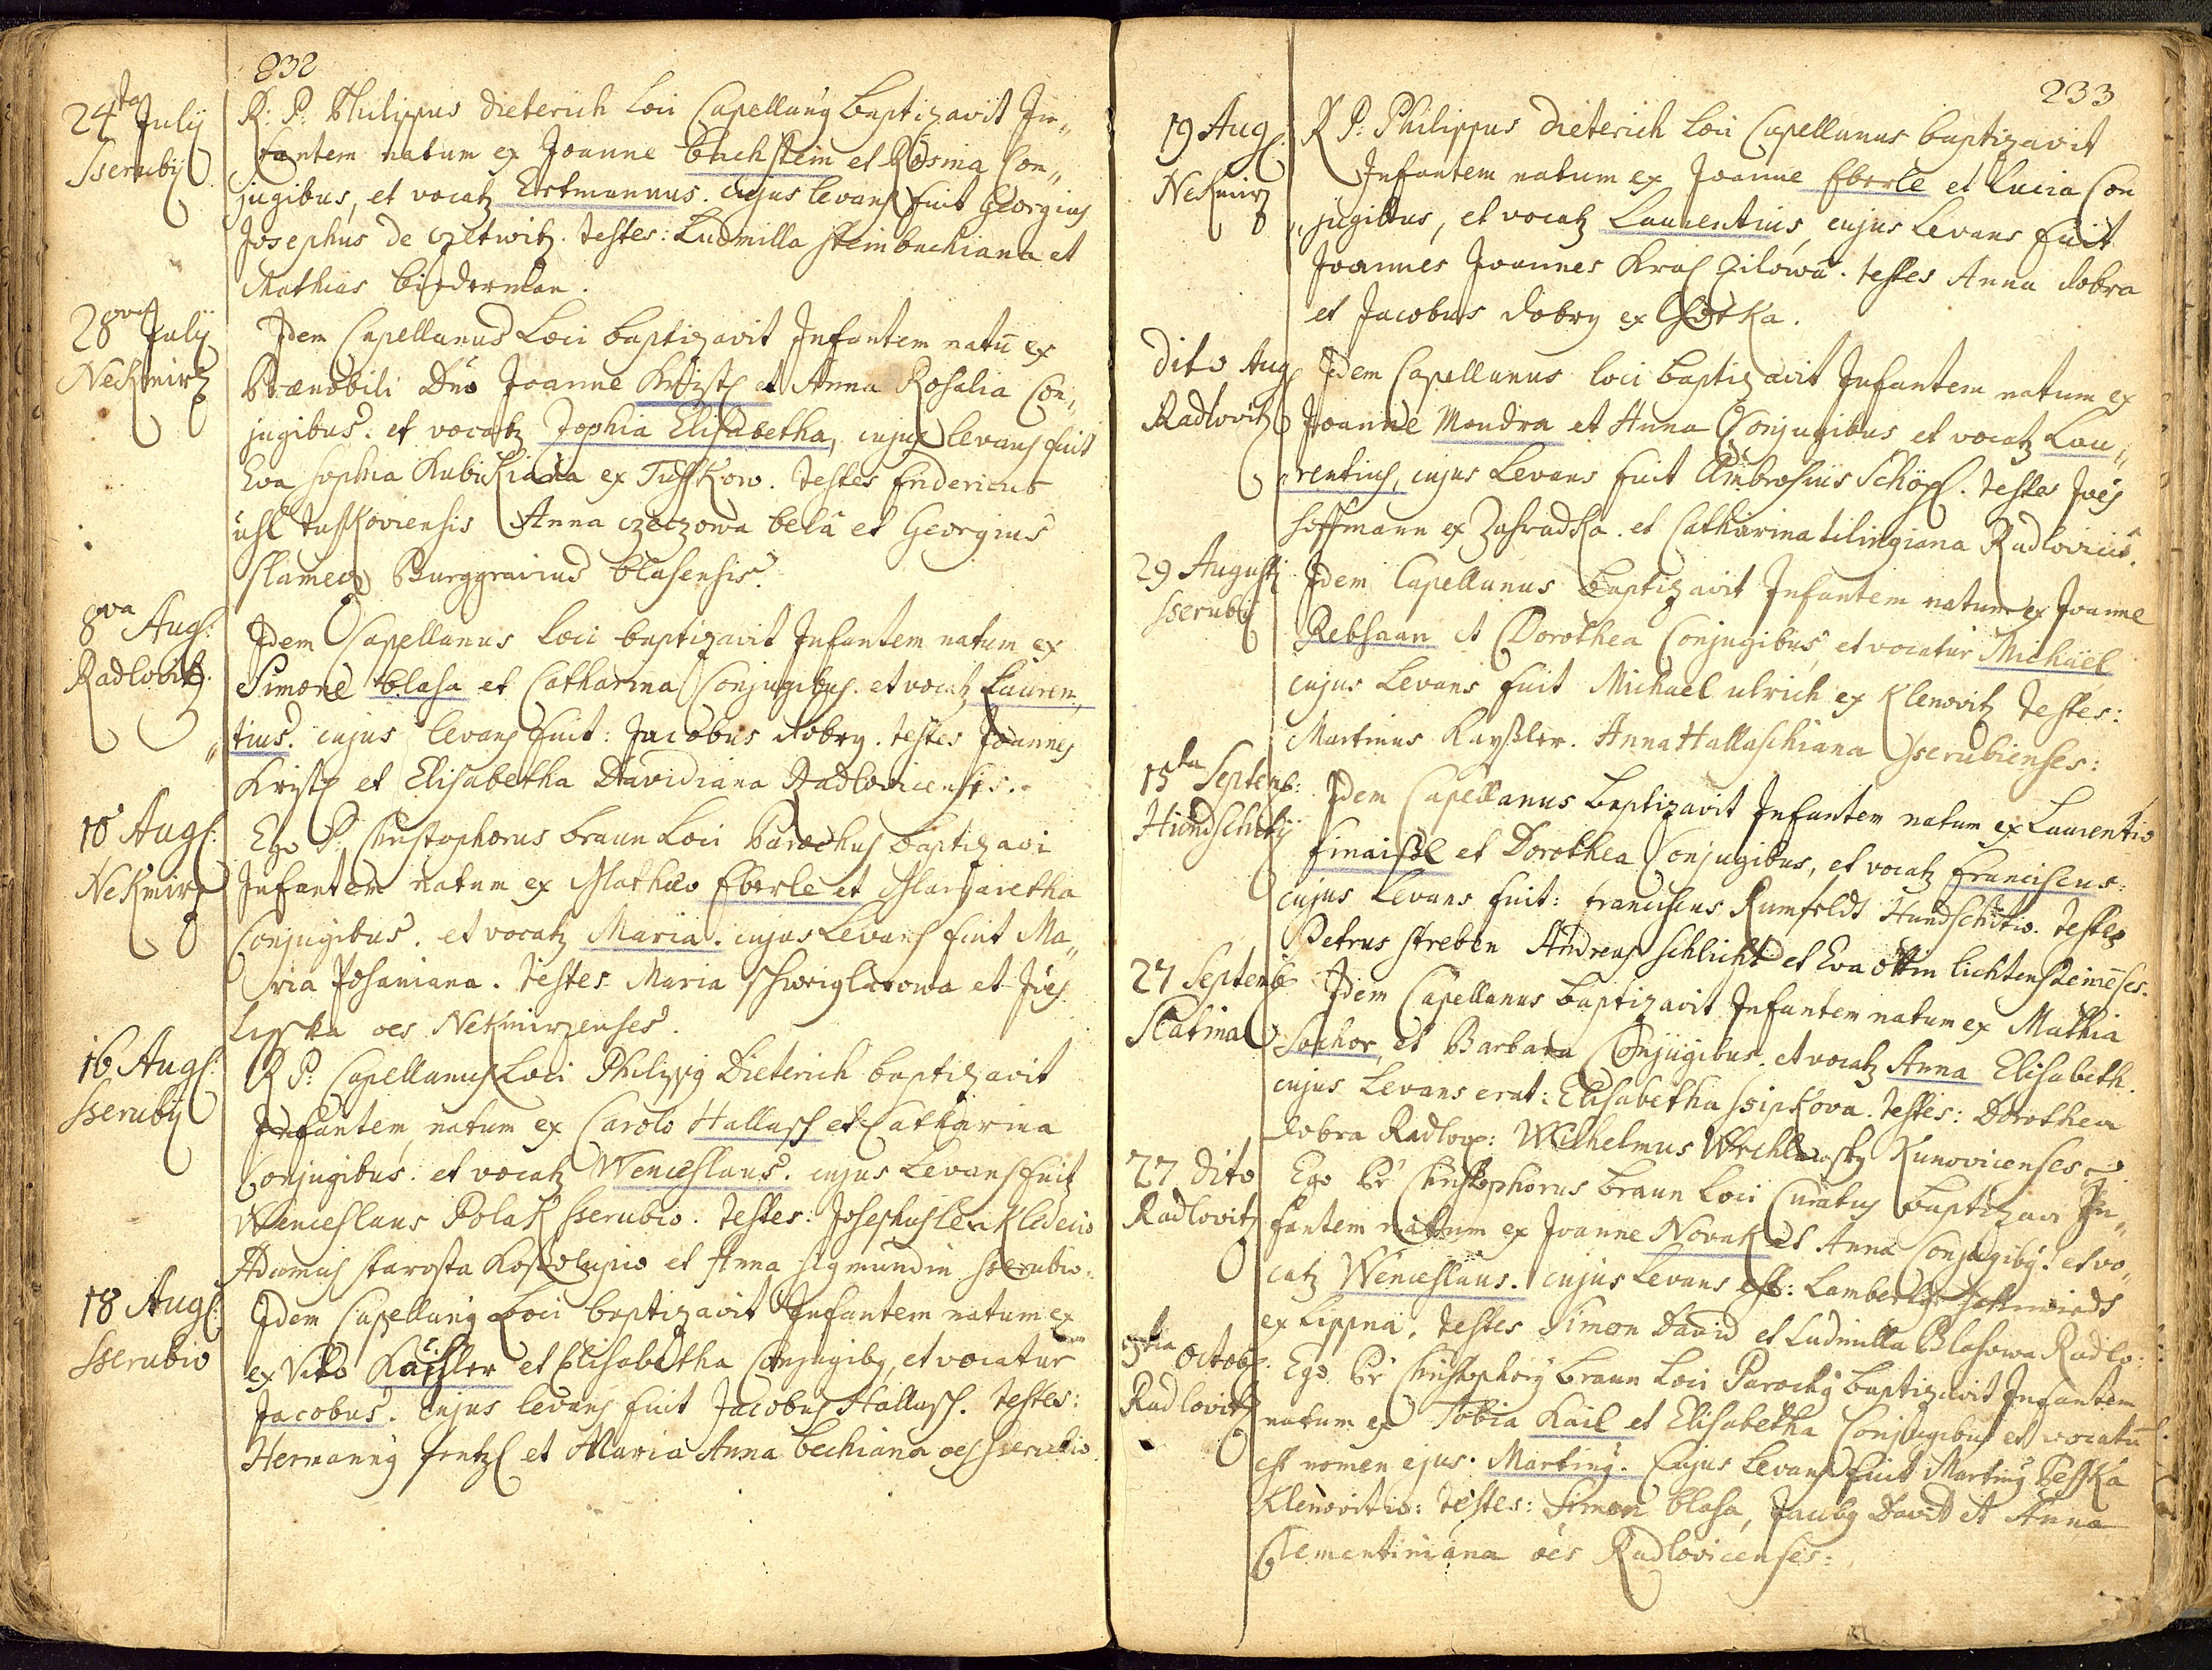 232
24ta July
Sserubÿ
R: P: Philippus Dieterich Loci Capellanus baptizavit In„
fantem natum ex Joanne Buchstein et Rosina Con„
jugibus, et vocatz Ertmannus. cujus levans fuit Georgius
Josephus de Czetwitz. testes: Ludmilla Steinbachiana et
Mathias Biederman.
28va July
Nekmirz
Idem Capellanus Loci baptizavit Infantem natū ex
Prænobili Dno Joanne Krzist et Anna Rosalia Con„
jugibus. et vocatz Sophia Elisabetha, cujus levans fuit
Eva Sophia Kubickiana ex Tusskow. Testes Fridericus
Tusskoviensis Anna czeczowa Bela et Georgius
Slamecz Burggravius blasensis.
8va Aug:
Radlovitz.
Idem Capellanus Loci baptizavit Infantem natum ex
Simone blasa et Catharina Conjugibus. et vocatz Lauren„
„tius. cujus levans fuit: Jacobus dobry. testes Joannes
Krist et Elisabetha Davidiana Radlovicensis.
10 Aug:
Nekmirz
Ego P: Christophorus Braun Loci Parochus baptizavi
Infantem natum ex Mathæo Eberle et Margaretha
Conjugibus. et vocatz Maria. cujus Levans fuit Ma„
ria Posaniana. testes Maria et Joes
Lisska oes Nekmirzenses.
16 Aug:
Sserubÿ
R P: Capellanus Loci Philippus Dieterich baptizavit
Infantem natum ex Carolo Hallasch et Catharina
Conjugibus. et vocatz Wenceslaus. cujus Levans fuit
Wenceslaus Polak Sserubio. Testes: Josephus
Adamus starosta et Anna Sigmundin Sserubio.
18 Aug:
Sserubio
Idem Capellanus Loci baptizavit Infantem natum ex
ex Vito Kaisler et Elisabetha Conjugibus, et vocatur
Jacobus. cujus levans fuit Jacobus Hallasch. Testes:
Hermannus frntzl et Maria Anna bechiana oes Sserubio.
233
19 Aug:
Nekmirz
R P: Philippus Dieterich Loci Capellanus baptizavit
Infantem natum ex Joanne Eberle et Lucia Con
„jugibus, et vocatz Laurentius, cujus Levans fuit
Joannes Joannes Kral Zilowa. testes Anna dobra
et Jacobus dobry ex Lhotka.
dito Aug
Radlovitz
Idem Capellanus loci baptizavit Infantem natum ex
Joanne Mondra et Anna Conjugibus et vocatz Lau„
„rentius, cujus Levans fuit Ambrosius Schöpf. Testes Joes
Hoffmann ex Zahradka. et Catharina tilingiana Radlovicis.
29 Augusti
Sserubÿ
Idem Capellanus baptizavit Infantem natum ex Joanne
Rebhaan et Dorothea Conjugibus, et vocatur Michaël
cujus Levans fuit Michael ulrich ex Klenovitz Testes:
Martinus Kayßler. Anna Hallaschiana Sserubienses:
15ta Septemb:
Hundschitz
Idem Capellanus baptizavit Infantem natum ex Laurentio
finaißl et Dorothea Conjugibus, et vocatz Franciscus:
cujus Levans fuit: Franciscus Rumfeldt Hundschitio. Testes
Petrus streben Andreas Schlicht et Eva ottin lichtensteinēses.
27 Septemb
Slatina
Idem Capellanus baptizavit Infantem natum ex Mathia
Sochor, et Barbara Conjugibus. et vocatz Anna Elisabeth.
cujus Levans erat: Elisabetha Ssipkova. Testes: Dorothea
dobra Radlov: Wilhelmus Kunovicenses
27 dito
Radlovitz
Ego Pr Christophorus Braun Loci Curatus baptizavi In„
fantem natum ex Joanne Novak et Anna Conjugibus. et vo„
catz Wenceslaus. cujus Levans est: Lambertus
ex Lippna. Testes Simon David et Ludmilla Blasowa Radlo:
3tia Octob:
Radlovitz
Ego Pr Christophorus Braun Loci Parochus baptizavit Infantem
natum ex Tobia Kail et Elisabetha Conjugibus et vocatū
est nomen ejus. Martinus. Cujus Levans fuit Martinus Pesska
Klenovitio: Testes: Simon blasa, Jacobus David et Anna
Clementiniana oes Radlovicenses: